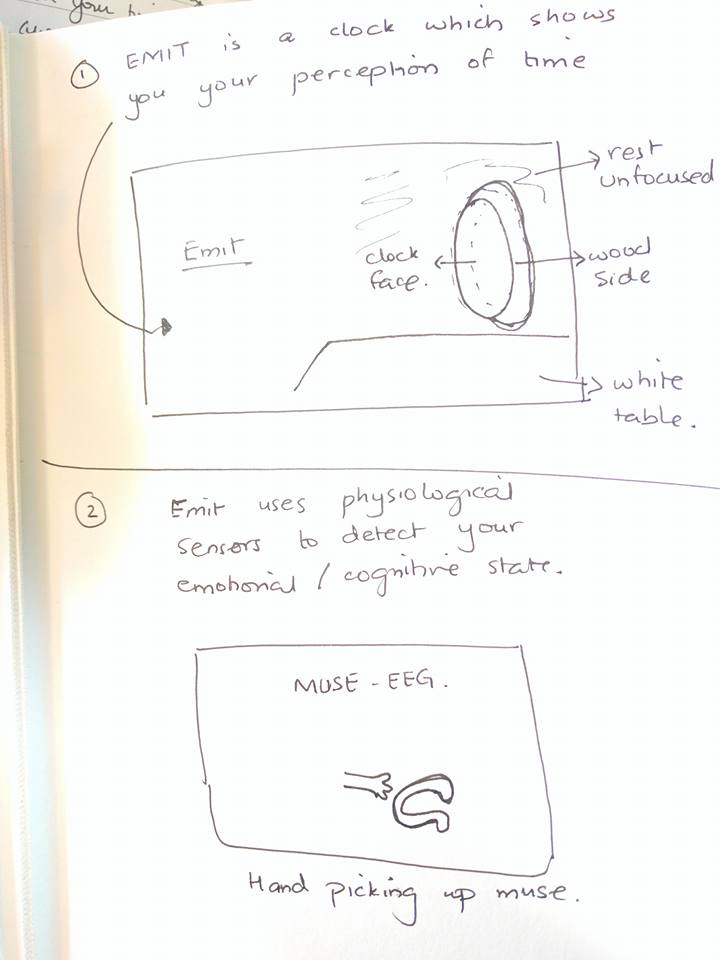 your
① EMIT is a clock which shows
you your perception of time
rest
unfocused
Emit
clock
face.
wood
side
white
table.
② Emit uses physiological
sensors to detect your
emotional / cognitive state.
MUSE - EEG.
Hand picking up muse.